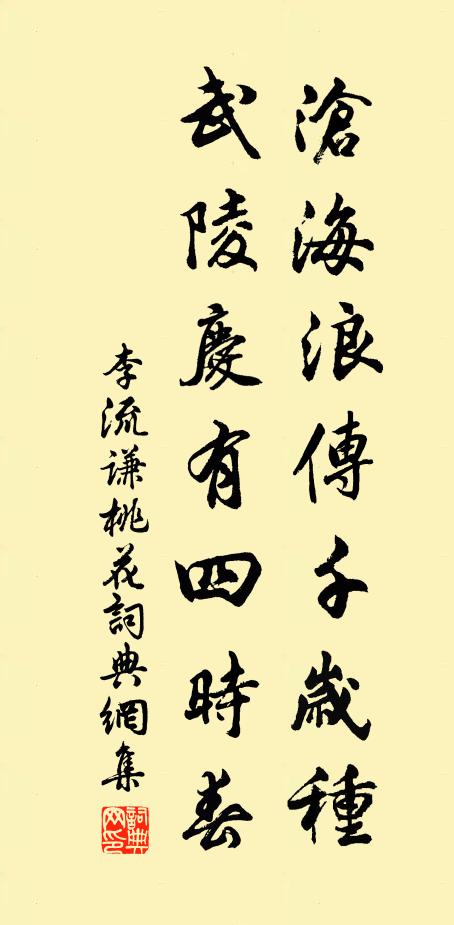 滄海浪傳千歲種
武陵慶有四時春
李流謙桃花詞典網集
詞典网印